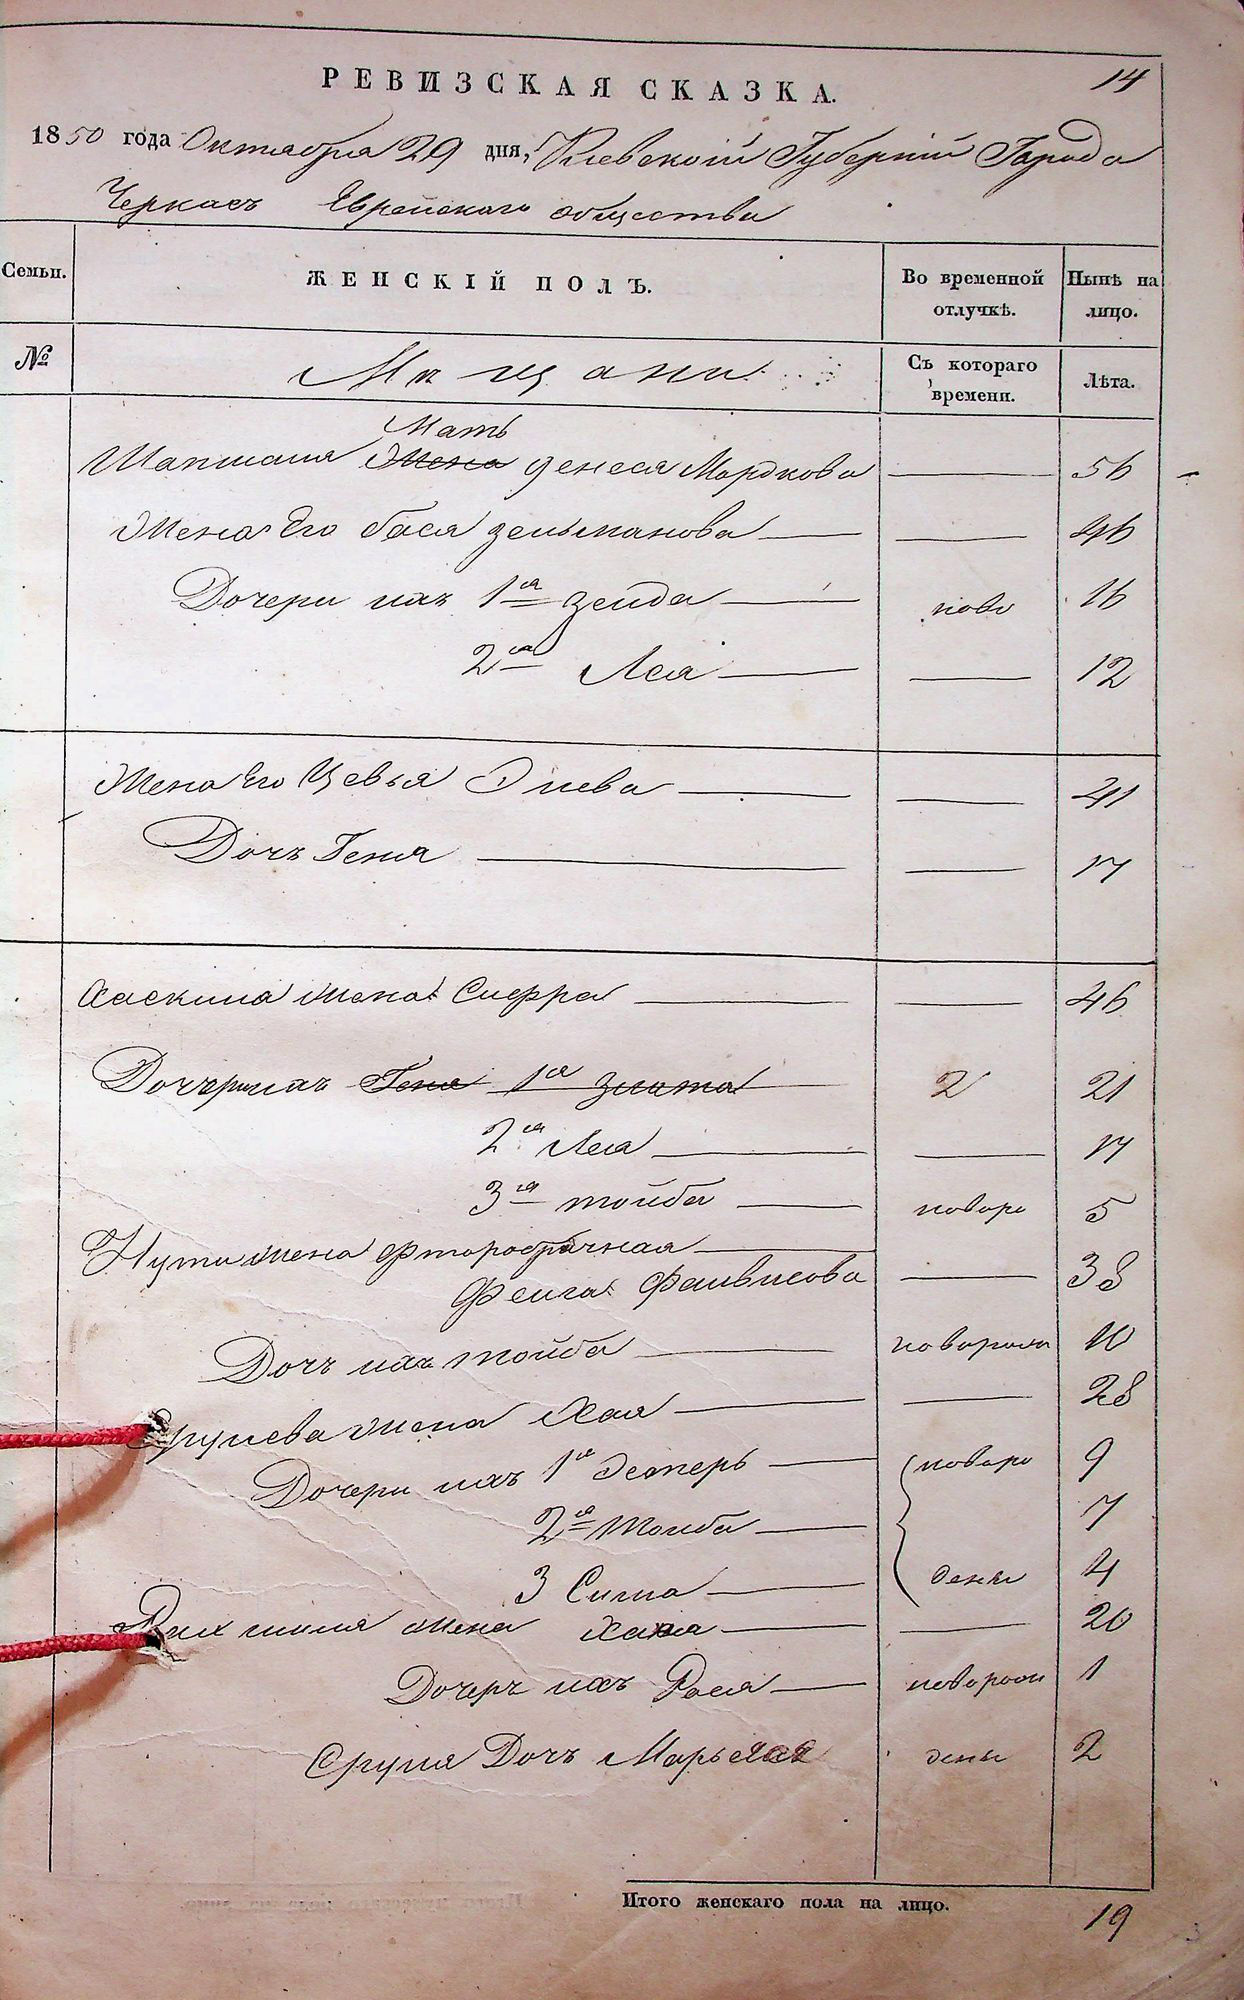 14
РЕВИЗСКАЯ СКАЗКА.
1850 года Октября 29 дня, Киевской Губерніи Города
Черкасъ Еврейскаго общества
Семьи. ЖЕНСКІЙ ПОЛЪ. Во временной отлучкѣ. Нынѣ на лицо.
№ Мѣщани Съ котораго времени. Лѣта.
Мать
Шапшоля Жена Денеся Мордкова 56
Жена Его Бася Зельманова 46
Дочери ихъ 1я Зейда ново 16
2я Лея 12
Жена Его Цевья Элиева 41
Дочь Геня 17
Хаскиля жена Сифра 46
Дочери ихъ Геня 1я Злота 2 21
2я Лея 17
3я Тойба новоро 5
Нути жена Фторобрачная
Фейга Файвисова 38
Дочь ихъ Тойба новорож 10
Срулева Жена Хая 28
Дочери ихъ 1я Эстеръ новоро 9
2я Тойба 7
3 Сима дены 4
жена Хана 20
Дочеръ ихъ Рося новорож 1
Сруля Дочь Марьяся дены 2
Итого женскаго пола на лицо. 19